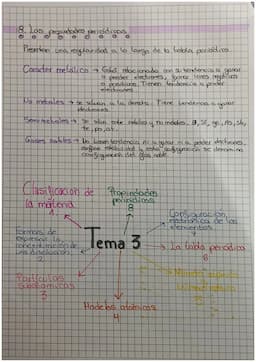 8. Las propiedades periódicas
Presentan una regularidad a lo largo de la tabla periódica.
Carácter metálico → Está relacionado con su tendencia a ganar
o perder electrones, formar iones negativos
o positivos. Tienen tendencia a perder
electrones
No metales → se sitúan a la derecha. Tiene tendencia a ganar
electrones.
Semimetales → están entre metales y no metales. B, Si, ge, As, Sb,
te, po, at.
Gases nobles → No tienen tendencia ni a ganar ni a perder electrones.
configuración del gas noble.
Clasificación de
la materia
1.
Propiedades
periódicas
8
Configuración
electrónica de los
elementos
7
Formas de
expresar la
concentración de
una disolución
2.
Tema 3
La tabla periódica
6
Partículas
subatómicas
3
Modelos atómicos
4
5